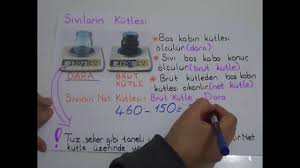 Sıvıların Kütlesi
* Boş kabın kütlesi
ölçülür (dara)
* Sıvı boş kaba konur,
ölçülür. (brüt kütle)
* Brüt kütleden boş kabın
kütlesi çıkarılır (net kütle)
150gr
460gr
DARA
BRÜT
KÜTLE
Sıvının Net Kütlesi = Brüt Kütle - Dara
460-150=
! Tuz, şeker gibi taneli
Net
kütle üzerinde